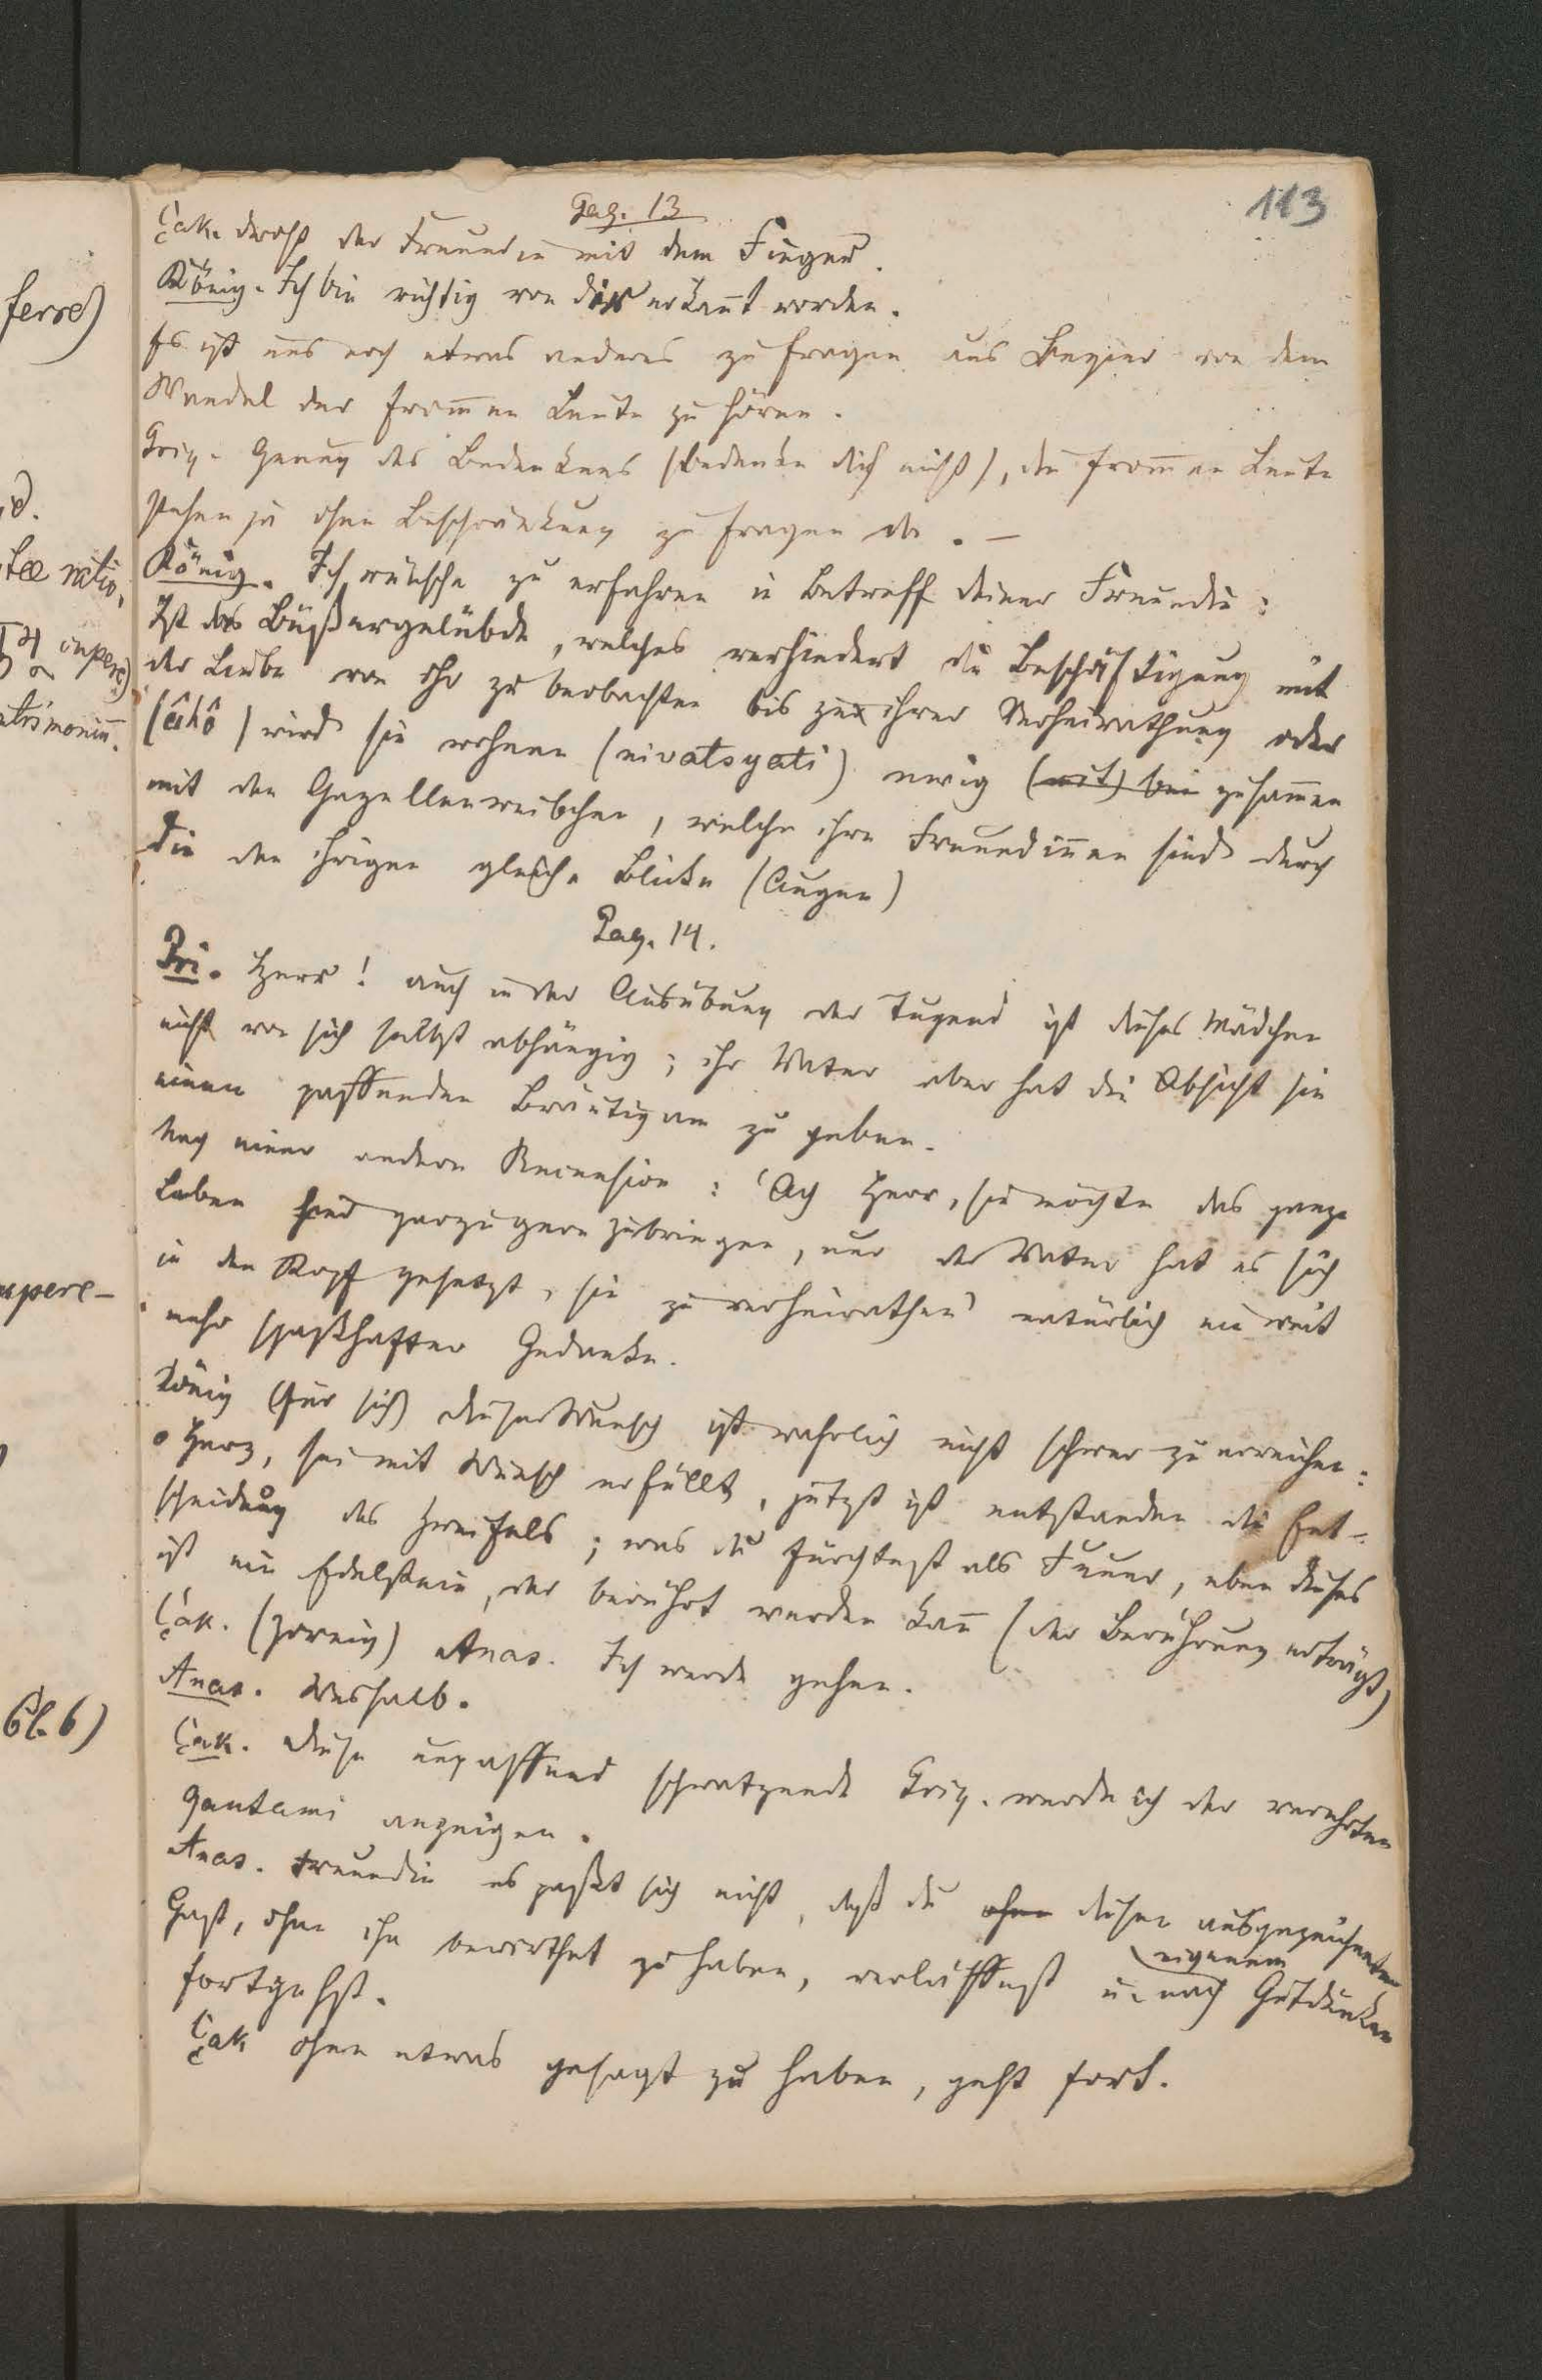 113
Pag. 13
Çak. droht der Freundin mit dem Finger.
König. Ich bin richtig von dir erkañt worden.
Es ist uns noch etwas anderes zu fragen aus Begier von dem
Wandel der from̃en Leute zu hören.
Priy. Genug des Bedenkens (bedenke dich nicht), die from̃en Leute
stehen ja ohne Beschränkung zu fragen da. —
König. Ich wünsche zu erfahren in Betreff deiner Freundin:
Ist das Büßergelübde, welches verhindert die Beschäftigung mit
der Liebe von ihr zu beobachten bis zu ihrer Verheirathung oder
(âhô) wird sie wohnen (nivatsyati) ewig (mit) bei zusam̃en
mit den Gazellenweibchen, welche ihre Freundiñen sind durch
die den ihrigen gleiche Blicke (Augen)
Pag. 14.
Pri. Herr! auch in der Ausübung der Tugend ist dieses Mädchen
nicht von sich selbst abhängig; ihr Vater aber hat die Absicht sie
einem passenden Bräutigam zu geben.
Nach einer andern Recension: 'Ach Herr, sie möchte das ganze
Leben hier gar zu gern zubringen, nur der Vater hat es sich
in den Kopf gesetzt, sie zu verheirathen' natürlich ein weit
mehr spaßhafter Gedanke.
König (für sich) dieser Wunsch ist wahrlich nicht schwer zu erreichen:
o Herz, sei mit Wunsch erfüllt, jetzt ist entstanden die Ent-
scheidung des Zweifels; was du fürchtest als Feuer, eben dieses
ist ein Edelstein, der berührt werden kañ (der Berührung erträgt)
Çak. (zornig) Anas. Ich werde gehen.
Anas. Weshalb.
Çak. diese unpassend schwatzende Priy. werde ich der verehrten
Gautami anzeigen.
Anas. Freundin es paßt sich nicht, daß du ohne diesen ausgezeichneten
Gast, ohne ihn bewirthet zu haben, verläßest u. nach eigenem Gutdünken
fortgehst.
Çak ohne etwas gesagt zu haben, geht fort.
ferre)
id.